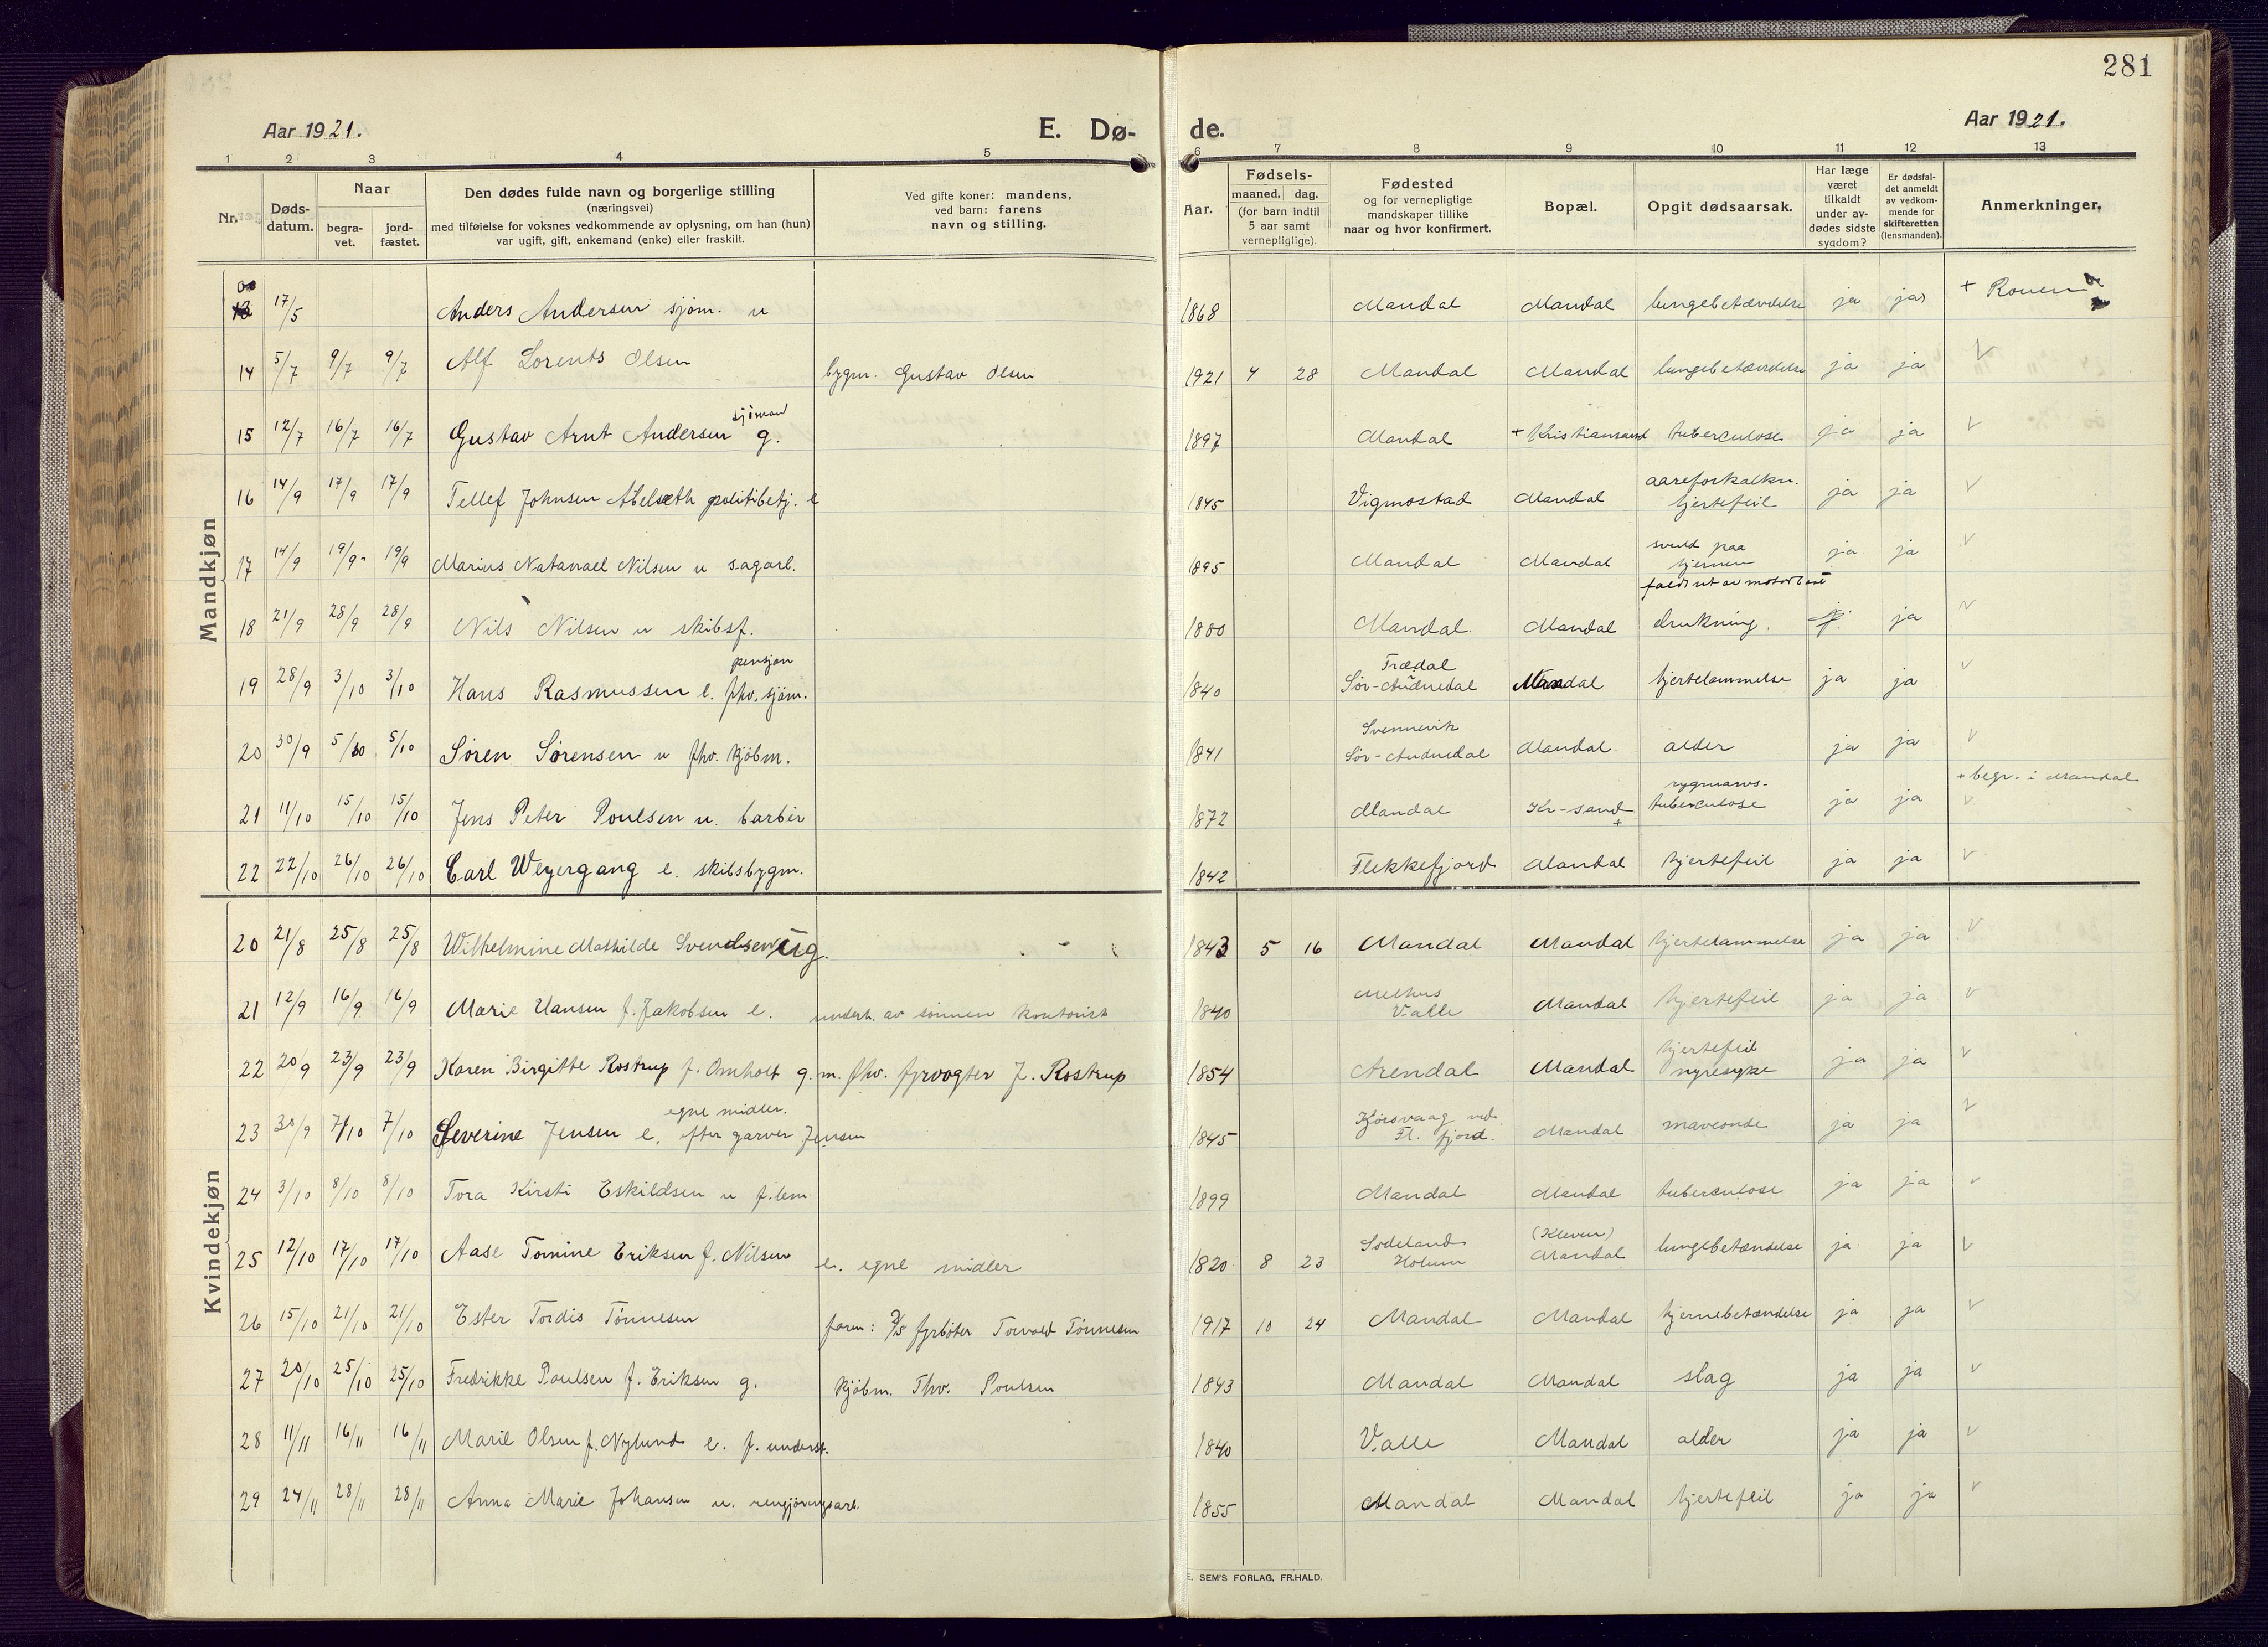 281
Aar 1921.
E. Dø-
de.
Aar 1921.
1 2 3 4 5 6 7 8 9 10 11 12 13
Nr.
Døds-
datum.
Naar
begra-
vet.
jord-
fæstet.
Den dødes fulde navn og borgerlige stilling
(næringsvei)
med tilføielse for voksnes vedkommende av oplysning, om han (hun)
var ugift, gift, enkemand (enke) eller fraskilt.
Ved gifte koner: mandens,
ved barn: farens
navn og stilling.
Aar.
Fødsels-
maaned. dag.
(for barn indtil
5 aar samt
vernepligtige)
Fødested
og for vernepligtige
mandskaper tillike
naar og hvor konfirmert.
Bopæl.
Opgit dødsaarsak.
Har læge
været
tilkaldt
under av-
dødes sidste
sygdom?
Er dødsfal-
det anmeldt
av vedkom-
mende for
skifteretten
(lensmanden).
Anmerkninger.
Mandkjøn
17/5 Anders Andersen sjøm. u 1868 Mandal Mandal lungebetændelse ja ja + Rouen
14 5/7 9/7 9/7 Alf Lorents Olsen bygm. Gustav Olsen 1921 4 28 Mandal Mandal lungebetændelse ja ja
sjömand
15 12/7 16/7 16/7 Gustav Arnt Andersen g. 1897 Mandal + Kristiansand tuberculose ja ja
aareforkalkn.
16 14/9 17/9 17/9 Tellef Johnsen Abelseth politibetj. e 1845 Vigmostad Mandal hjertefeil ja ja
svuld paa
17 14/9 19/9 19/9 Marius Natanael Nilsen u sagarb. 1895 Mandal Mandal hjernen ja ja
faldt ut av motorbaat
18 21/9 28/9 28/9 Nils Nilsen u skibsf. 1880 Mandal Mandal drukning. ja
pensjon Trædal
19 28/9 3/10 3/10 Hans Rasmussen e. fhv. sjøm. 1840 Sør-Audnedal Mandal hjertelammelse ja ja
Svennevik
20 30/9 5/10 5/10 Søren Sørensen u fhv. kjøbm. 1841 Sør-Audnedal Mandal alder ja ja
rygmarvs- + begr. i Mandal
21 11/10 15/10 15/10 Jens Peter Poulsen u. barber 1872 Mandal Kr-sand + tuberculose ja ja
22 22/10 26/10 26/10 Carl Weyergang e. skibsbygm. 1842 Flekkefjord Mandal hjertefeil ja ja
Kvindekjøn
20 21/8 25/8 25/8 Wilhelmine Mathilde Svendsen ug. 1843 5 16 Mandal Mandal hjertelammelse ja ja
21 12/9 16/9 16/9 Marie Hansen f. Jakobsen e. underh. av sønnen kontorist 1840 Valle Mandal hjertefeil ja ja
hjertefeil
22 20/9 23/9 23/9 Karen Birgitte Rostrup f. Omholt g. m. fhv. fyrvogter J. Rostrup 1854 Arendal Mandal nyresyke ja ja
egne midler. Kjørsvaag ved
23 30/9 7/10 7/10 Severine Jensen e. efter garver Jensen 1845 Fl. fjord. Mandal maveonde ja ja
24 3/10 8/10 8/10 Tora Kirsti Eskildsen u f. lem 1899 Mandal Mandal tuberculose ja ja
Sodeland (Kleven)
25 12/10 17/10 17/10 Aase Tomine Eriksen f. Nilsen e. egne midler 1820 8 23 Holum Mandal lungebetændelse ja ja
26 15/10 21/10 21/10 Ester Tordis Tønnesen faren: D/S fyrbøter Torvald Tønnesen 1917 10 24 Mandal Mandal hjernebetændelse ja ja
27 20/10 25/10 25/10 Fredrikke Poulsen f. Eriksen g. kjøbm. Thv. Poulsen 1843 Mandal Mandal slag ja ja
28 11/11 16/11 16/11 Marie Olsen f. Nylund e. f. underst. 1840 Valle Mandal alder ja ja
29 24/11 28/11 28/11 Anna Marie Johansen u. rengjøringsarb. 1855 Mandal Mandal hjertefeil ja ja
E. SEM'S FORLAG, FR.HALD.